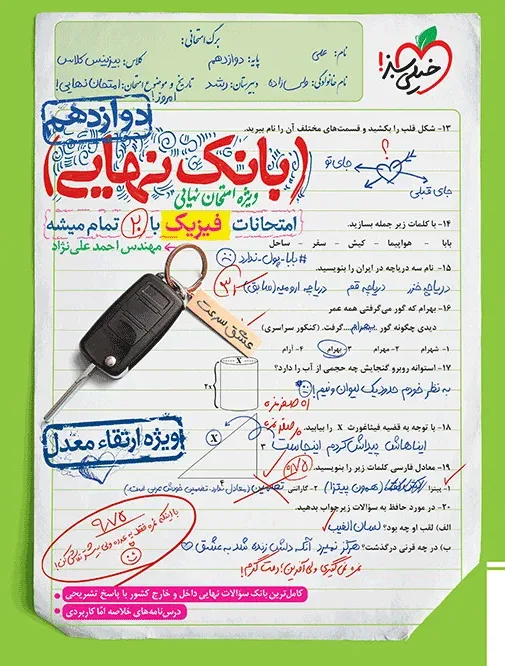 برگ امتحانی:
نام: علی
پایه: دوازدهم
کلاس: بیزینس کلاس
نام خانوادگی: والس زاده
دبیرستان: رشد
تاریخ و موضوع امتحان: امتحان نهایی!
امروز!
خیلی سبز!
دوازدهم
۱۳- شکل قلب را بکشید و قسمت‌های مختلف آن را نام ببرید.
؟
جای تو
جای قبلی
(بانک نهایی)
ویژه امتحان نهایی
امتحانات فیزیک با ۲۰ تمام میشه
مهندس احمد علی‌نژاد
۱۴- با کلمات زیر جمله بسازید.
بابا - هواپیما - کیش - سفر - ساحل
#بابا-پول-ندارد
۱۵- نام سه دریاچه در ایران را بنویسید.
دریاچه خزر دریاچه قم دریاچه ارومیه (سابق)
۱۶- بهرام که گور می‌گرفتی همه عمر
دیدی چگونه گور بهرام گرفت. (کنکور سراسری)
۱- شهرام ۲- مهرام ۳- بهرام ۴- آرام
عشق سرعت
۱۷- استوانه روبرو گنجایش چه حجمی از آب را دارد؟
به نظر خودم حدود یک لیوان و نیم!
۲x
x
ویژه ارتقاء معدل
۱۸- با توجه به قضیه فیثاغورث X را بیابید.
ایناهاش پیداش کردم اینجاست
X
۳
۴
۱۹- معادل فارسی کلمات زیر را بنویسید.
۱- پیتزا (همون پیتزا) ۲- گارانتی تضمین (معادل ندارد. تضمین خودش عربی است.)
۲۰- در مورد حافظ به سؤالات زیر جواب بدهید.
الف) لقب او چه بود؟ لسان الغیب
ب) در چه قرنی درگذشت؟ هرگز نمیرد آنکه دلش زنده شد به عشق
۹/۷۵
کامل‌ترین بانک سؤالات نهایی داخل و خارج کشور با پاسخ تشریحی
درس‌نامه‌های خلاصه امّا کاربردی